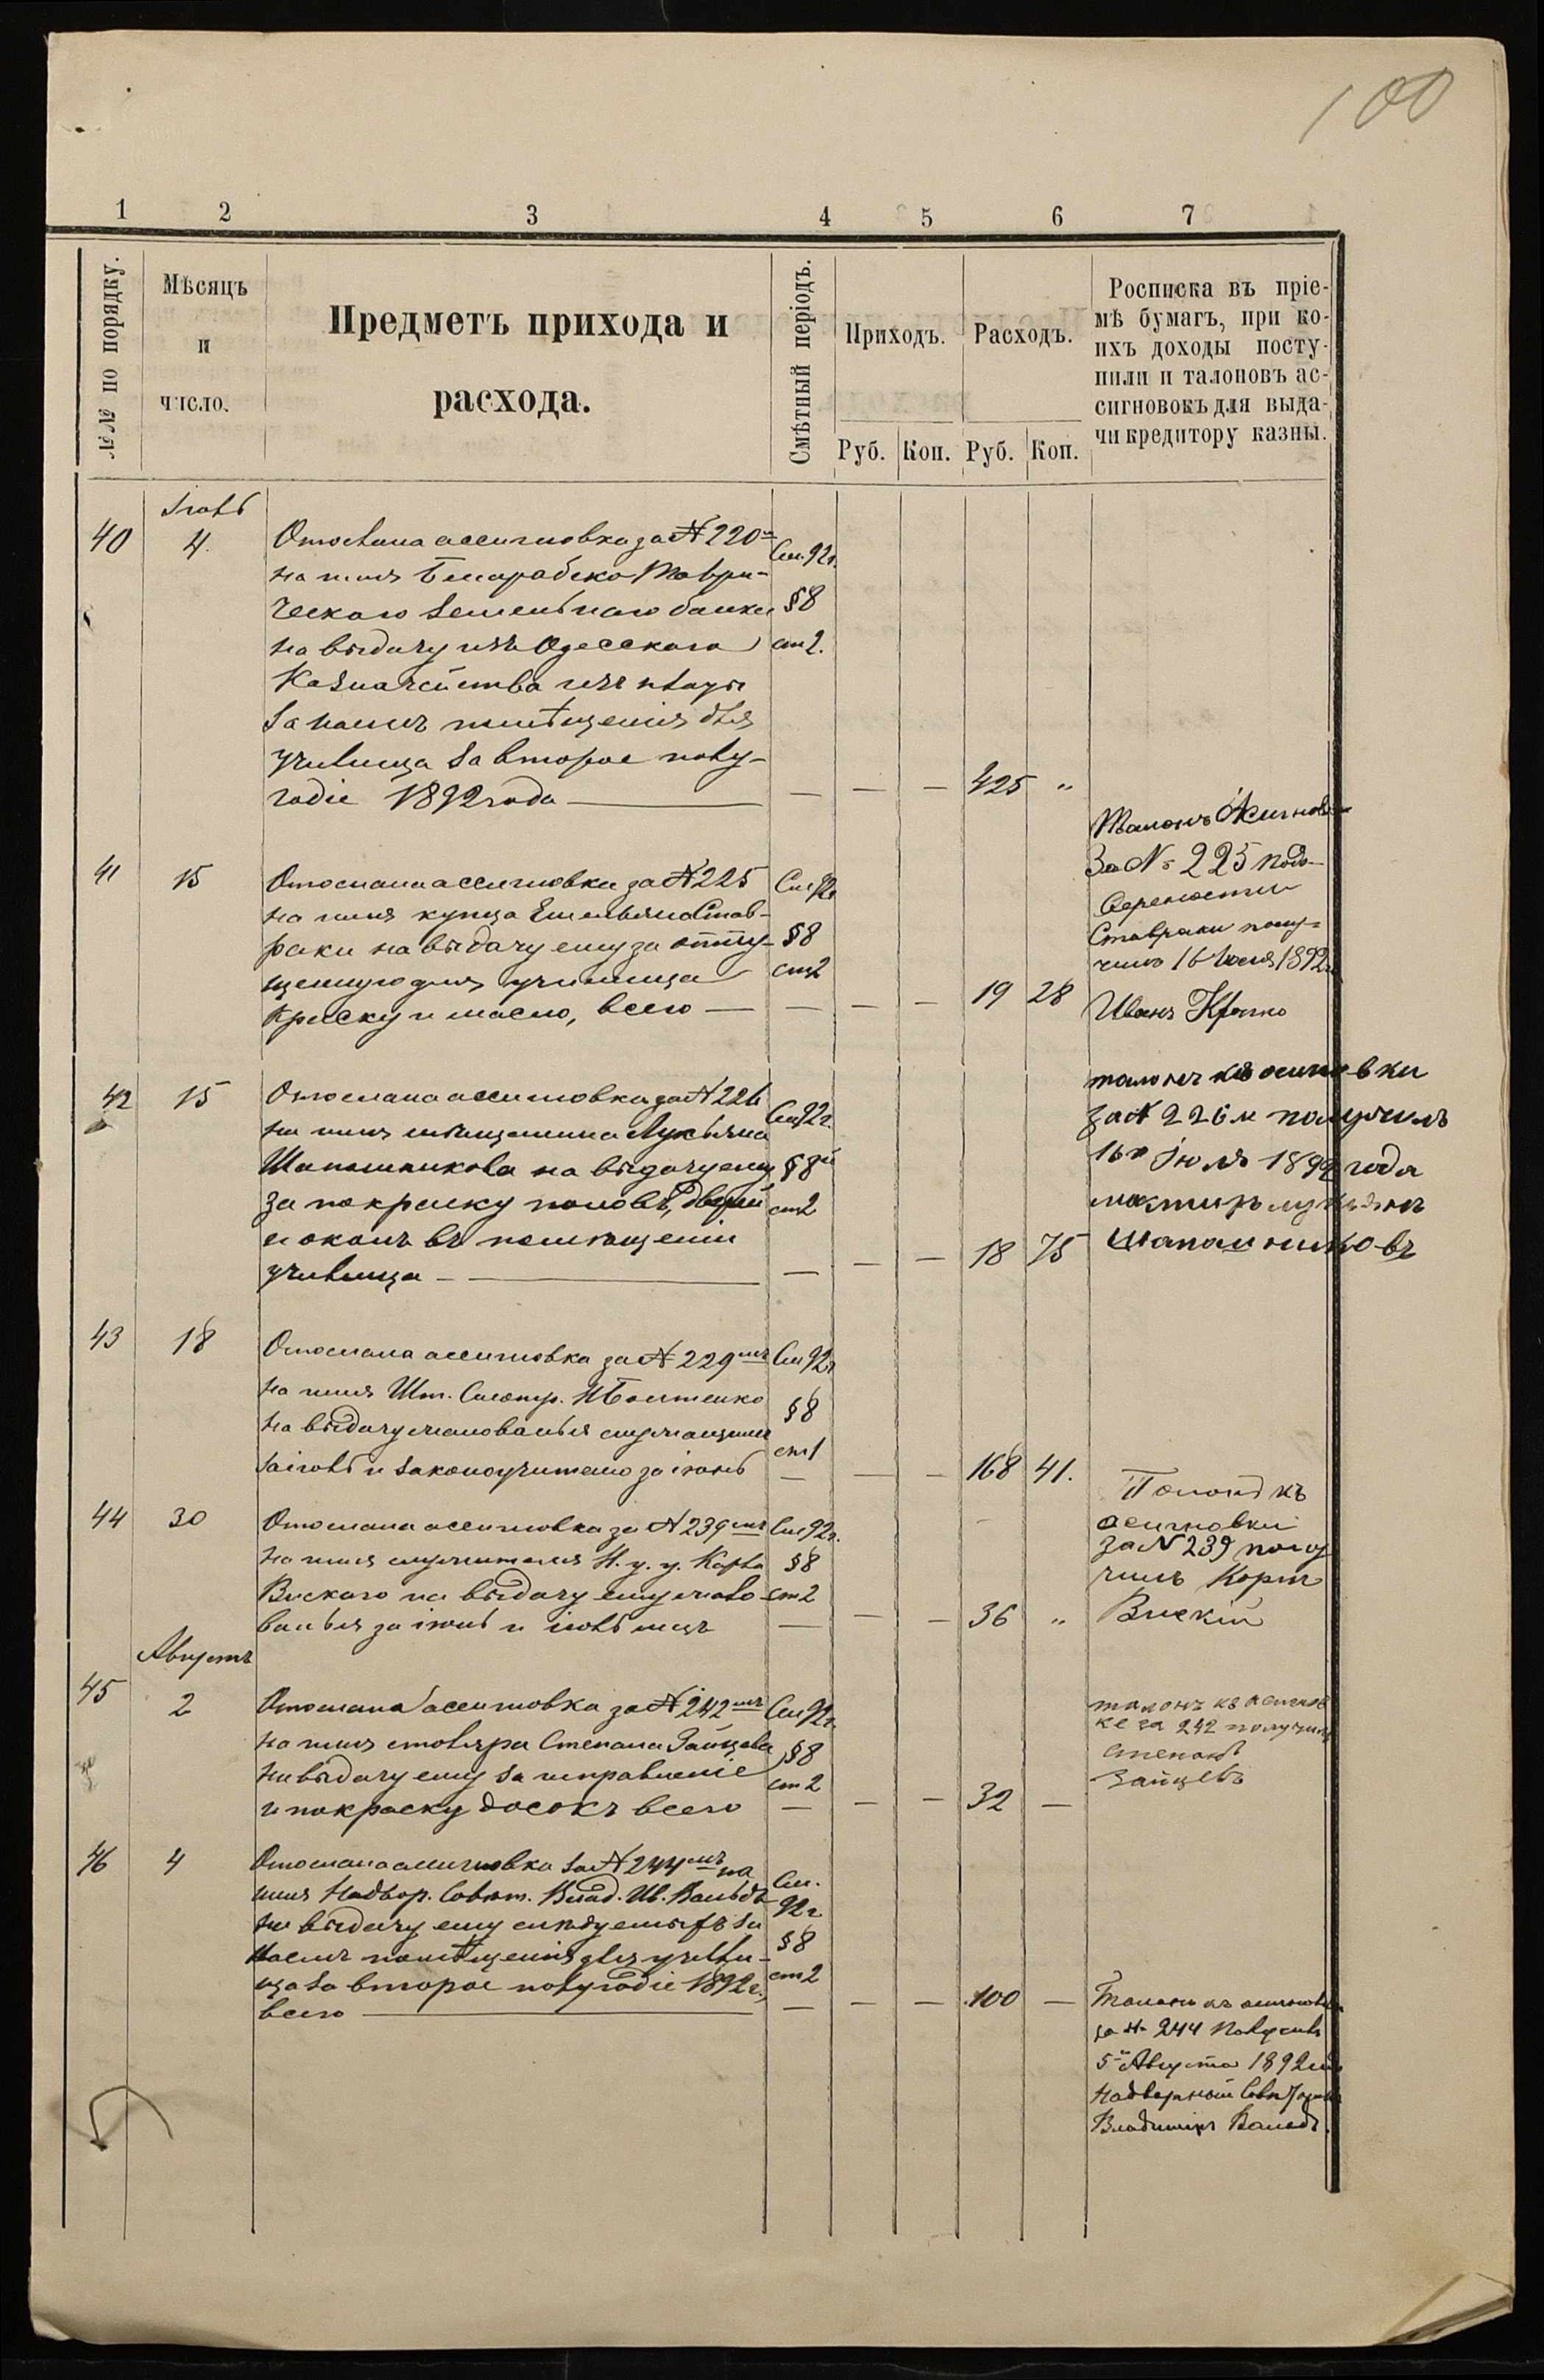 100
1 2 3 4 5 6 7
№№ по порядку.
Мѣсяцъ
и
число.
Предметъ прихода и
расхода.
Смѣтный періодъ.
Приходъ. Расходъ.
Руб. Коп. Руб. Коп.
Росписка въ пріе-
мѣ бумагъ, при ко-
ихъ доходы посту-
пили и талоновъ ас-
сигновокъ для выда-
чи кредитору казны.
Іюль
40 4. Отослана ассигновка за № 220 См. 92 г.
на имя Бессарабско-Таври-
ческаго Земельнаго банка § 8
на выдачу изъ Одесскаго ст 2.
Казначейства изъ платы
за наемъ помѣщенія для
училища за второе полу-
годіе 1892 года — — — — 425 "
41 15 Отослана ассигновка за № 225 См 92 г
на имя купца Емельяна Став-
раки на выдачу ему за отпу- § 8
щенную для училища ст 2
краску и масло, всего — — — — 19 28
Талонъ
За № 225 по до-
веренности
Ставраки полу-
чилъ 16 Июля 1892 г
Иванъ
42 15 Отослана ассигновка за № 226 См 92 г.
на имя мѣщанина Лукьяна
Шапошникова на выдачу ему § 8
за покраску половъ, дверей ст 2
и оконъ въ помѣщеніи
училища — — — — 18 75
талонъ
за № 226 м получилъ
16 го Июля 1892 года
Шапошниковъ
43 18 Отослана ассигновка за № 229 мъ См 92 г
на имя Шт. Смотр.
на выдачу жалованья служащимъ § 8
за іюль и законоучителю за іюнь ст 1 — — — 168 41.
44 30 Отослана ассигновка за № 239 мъ См 92 г.
на имя служителя Н. у. у. § 8
на выдачу ему жало- ст 2
ванья за іюнь и іюль мцъ — — — 36 "
Талонъ къ
асигновки
за № 239 полу
чилъ
Августъ
45 2 Отослана ассигновка за № 242 мъ См 92 г.
на имя столяра Степана Зайцева § 8
на выдачу ему за исправленіе ст 2
и покраску досокъ всего — — — 32 —
талонъ къ асигнов
ке за 242 получилъ
Степанъ
Зайцевъ
46 4 Отослана ассигновка за № 244 мъ на См.
имя Надвор. Совѣт. Влад. Ив. 92 г
на выдачу ему слѣдуемыхъ за
наемъ помѣщенія для учили- § 8
ща за второе полугодіе 1892 г., ст 2
всего — — — — 100 —
Талонъ къ
за № 244 Получилъ
5 Августа 1892
Надворный Совѣтникъ
Владиміръ